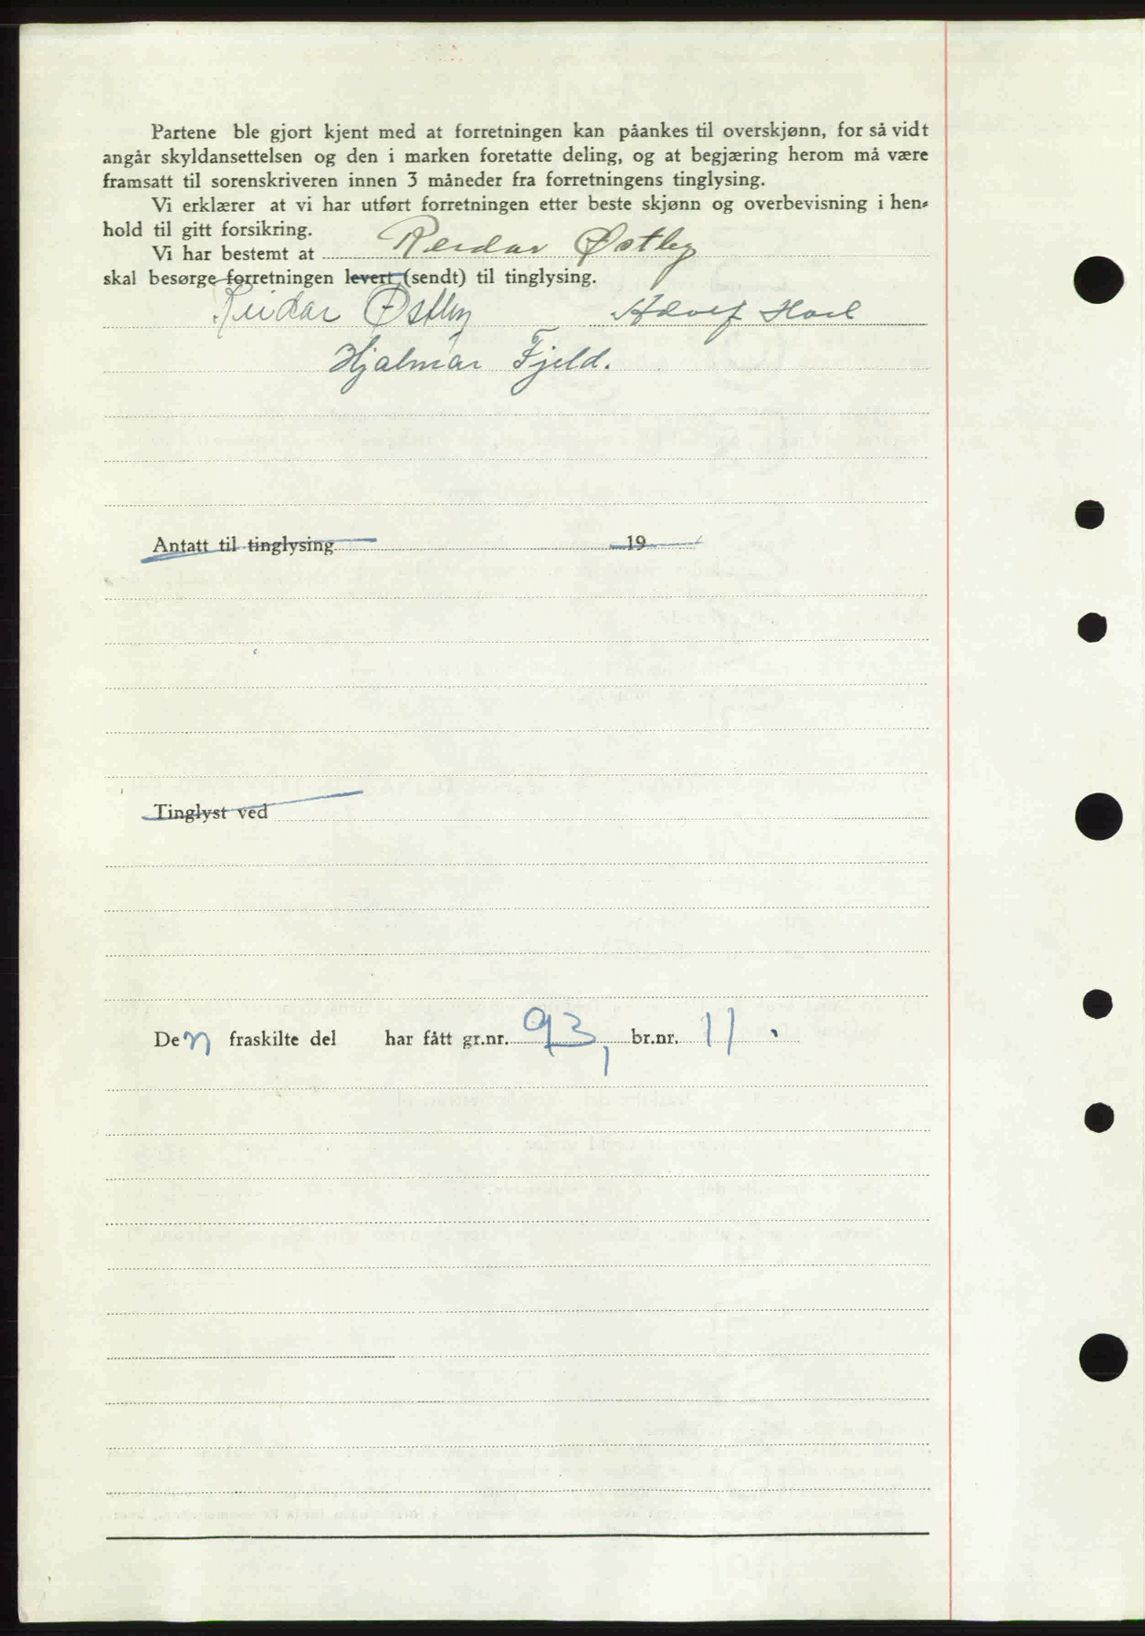 Partene ble gjort kjent med at forretningen kan påankes til overskjønn, for så vidt
angår skyldansettelsen og den i marken foretatte deling, og at begjæring herom må være
framsatt til sorenskriveren innen 3 måneder fra forretningens tinglysing.
Vi erklærer at vi har utført forretningen etter beste skjønn og overbevisning i hen-
hold til gitt forsikring.
Vi har bestemt at Reidar Østby
skal besørge forretningen levert (sendt) til tinglysing.
Reidar Østby Adolf
Hjalmar Fjeld.
Antatt til tinglysing 19
Tinglyst ved
Den fraskilte del har fått gr.nr. 93, br.nr. 11.